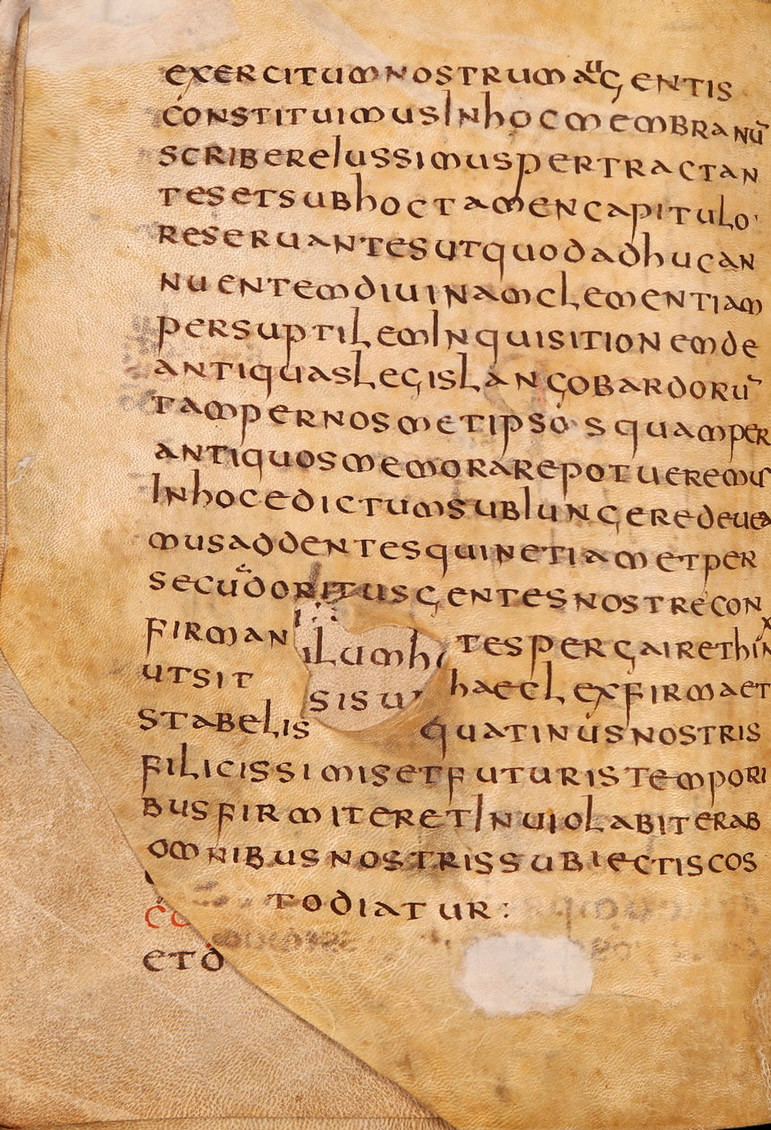 exercitum nostrum aūg entis
constituimus In hoc membranū
scribere Iussimus pertractan
tes et sub hoc tamen capitulo·
reseruantes ut quod adhuc an
nuentem diuinam clementiam
per suptilem Inquisitionem de
antiquas legis langobardorū
tam per nosmetipsos quam per
antiquos memorare potueremus
In hoc edictum subIungere deuea
mus addentes quin etiam et per
secūdo ritus gentes nostre con
firman ilumh tes per gairethinx
ut sit sisu haec lex firma et
stabelis quatinus nostris
filicissimis et futuris tempori
bus firmiter et Inuiolabiter ab
omnibus nostris subiectis cos
todiatur:
et d